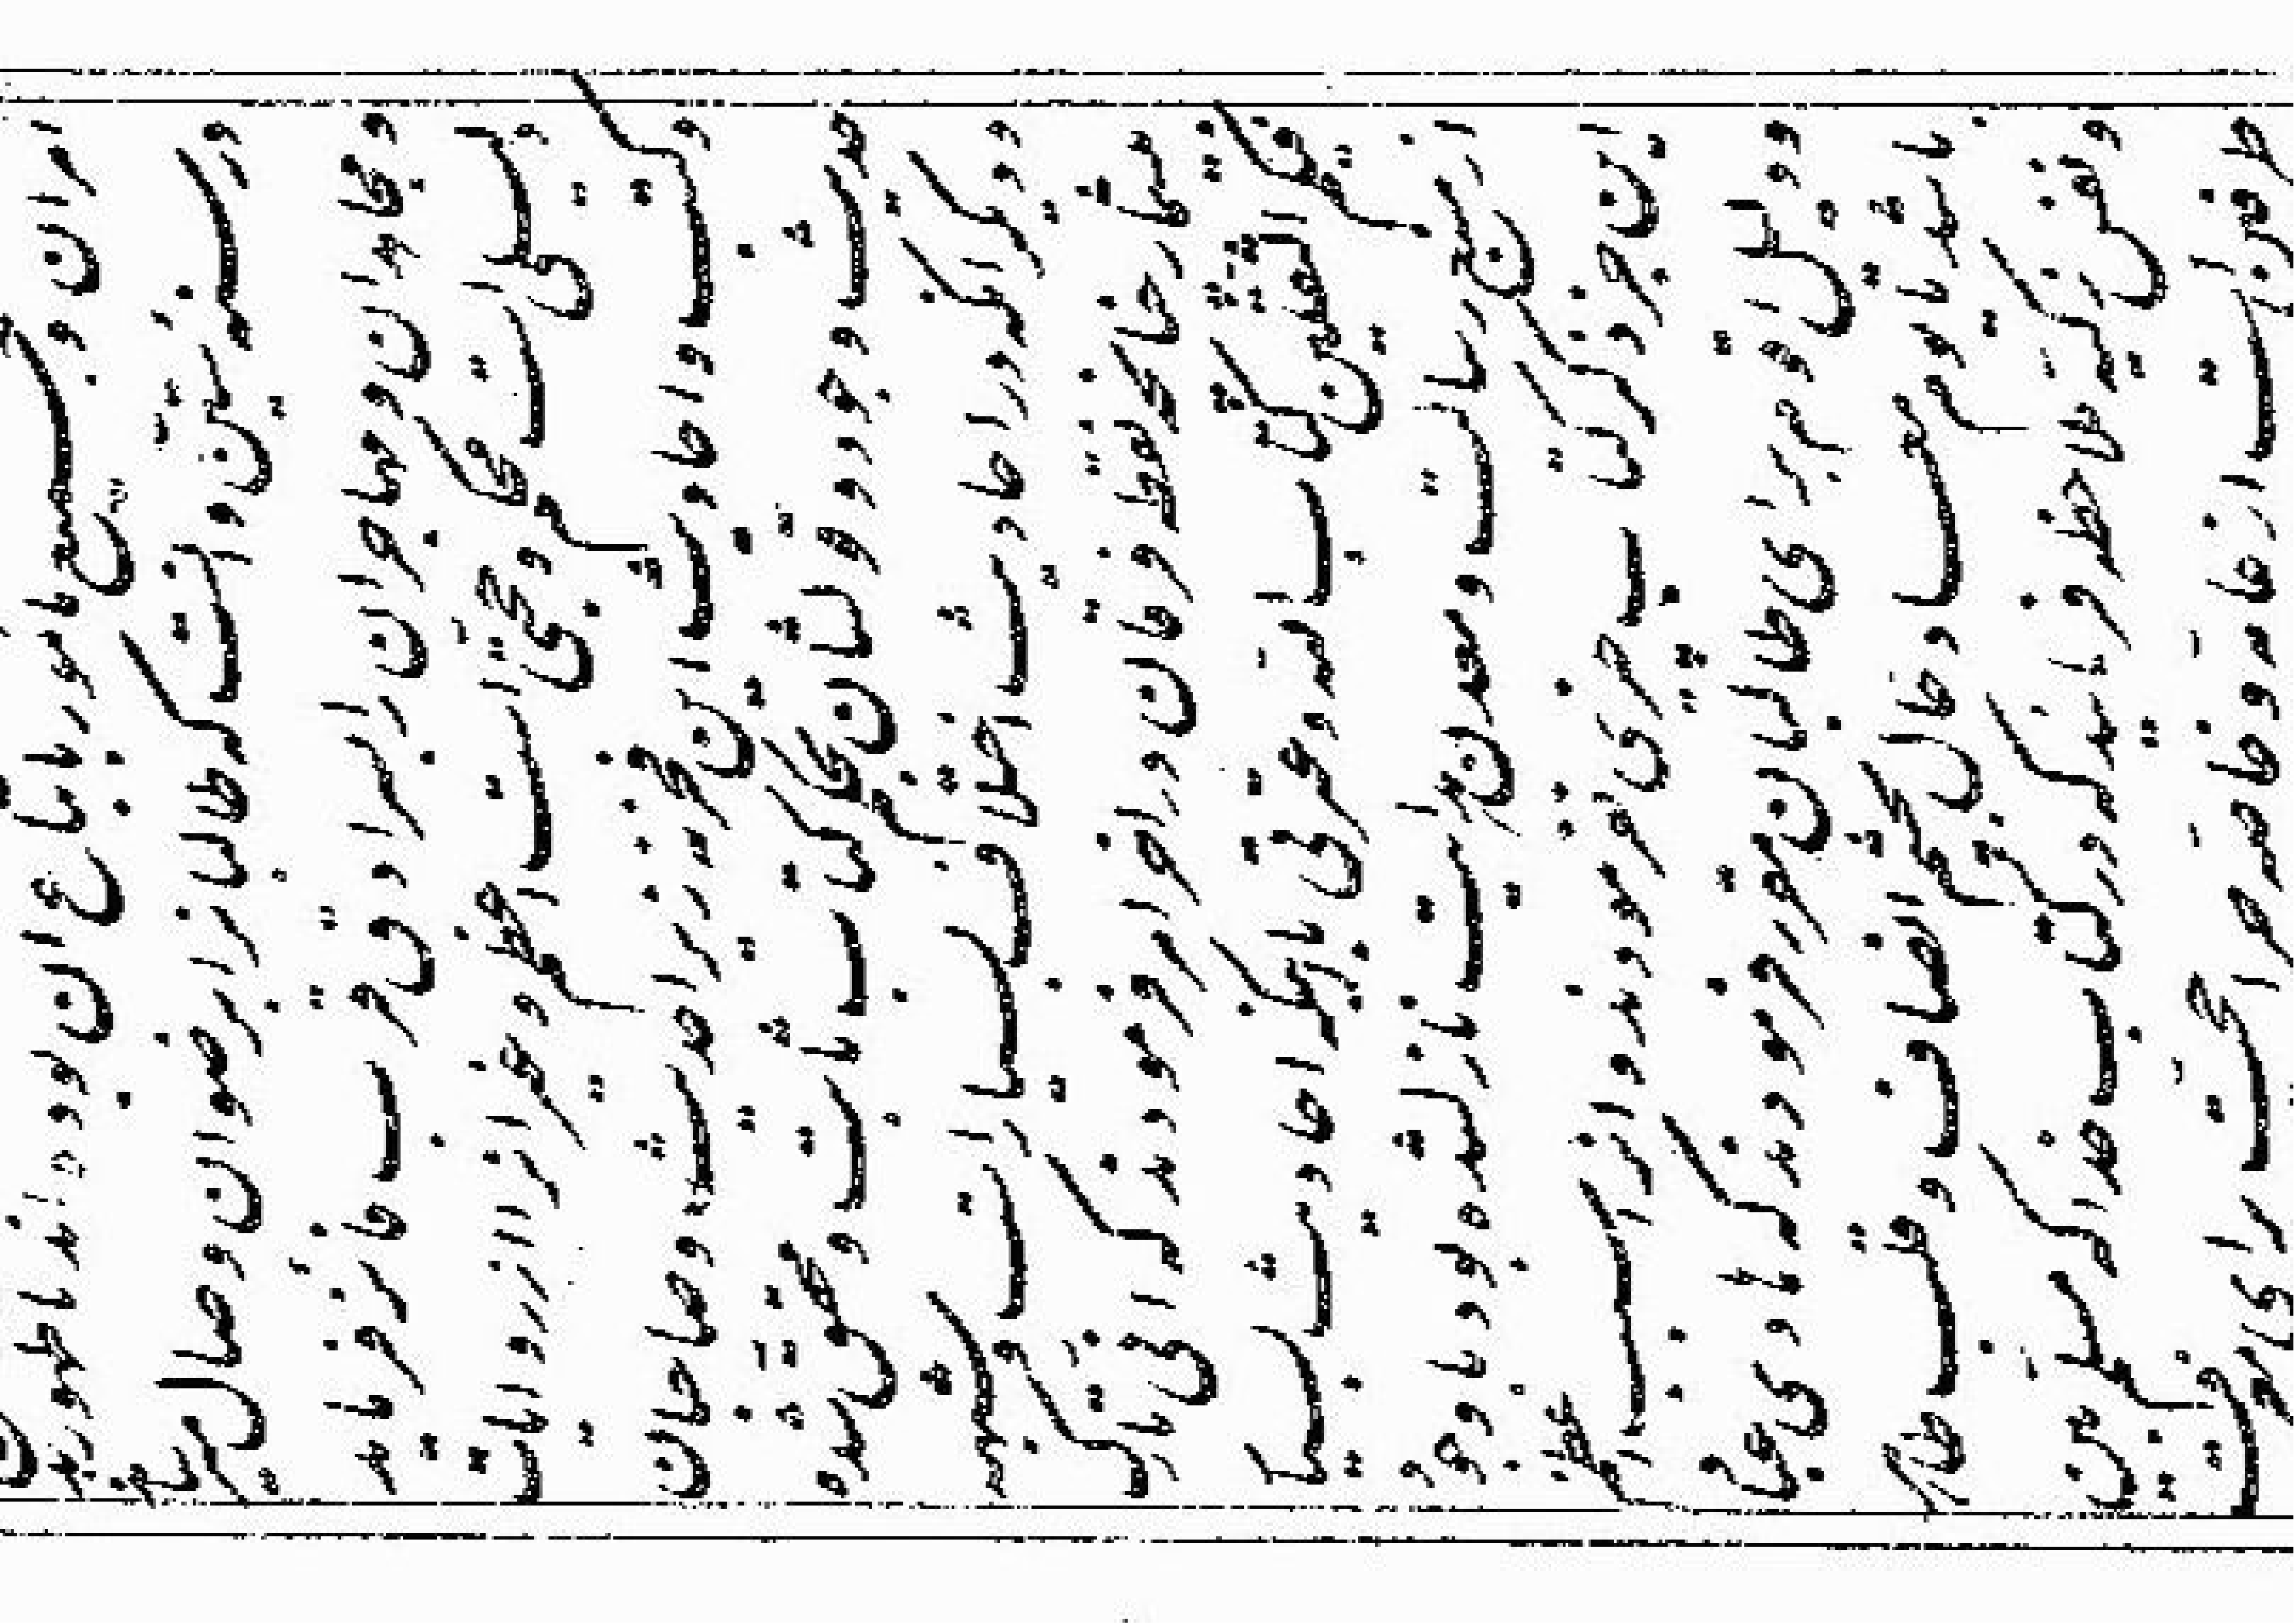 امر ان و جمیع مامور باتباع ان بوده اند تا ظهور بدیع
در سنه ستین و انست که طالبانرا برضوان وصال میرساند
و مجاهدان و مهاجران را بسرادق قرب فائز فرماید
دلیلی است محکم و حجتی است اعظم و غیر انرا از روایات
و کتب و احادیث این فخر نه زیرا حدیث و صاحبان
حدیث وجود و قولشان بحکم کتاب ثابت و محقق شده
و دیگر انکه در احادیث اختلاف بسیار است و شبهه
بیشمار چنانچه نقطه فرقان در اخر امر فرمودند که انی تارک
فیکم الثقلین کتاب الله و عترتی با اینکه احادیث بسیار
از ان منبع رسالت و معدن هدایت نازل شده بود با وجود
ان جز ذکر کتاب چیزی نفرمودند و انرا سبب اعظم
و دلیل اقوم برای طالبان مقرر فرمودند که هادی عباد
باشد تا یوم میعاد حال بچشم انصاف و قلب طاهر
و نفس زکیه ملاحظه فرمائید که در کتاب خدا که مسلم بین
طرفین است از عامه و خاصه چه را حجت برای معرفت